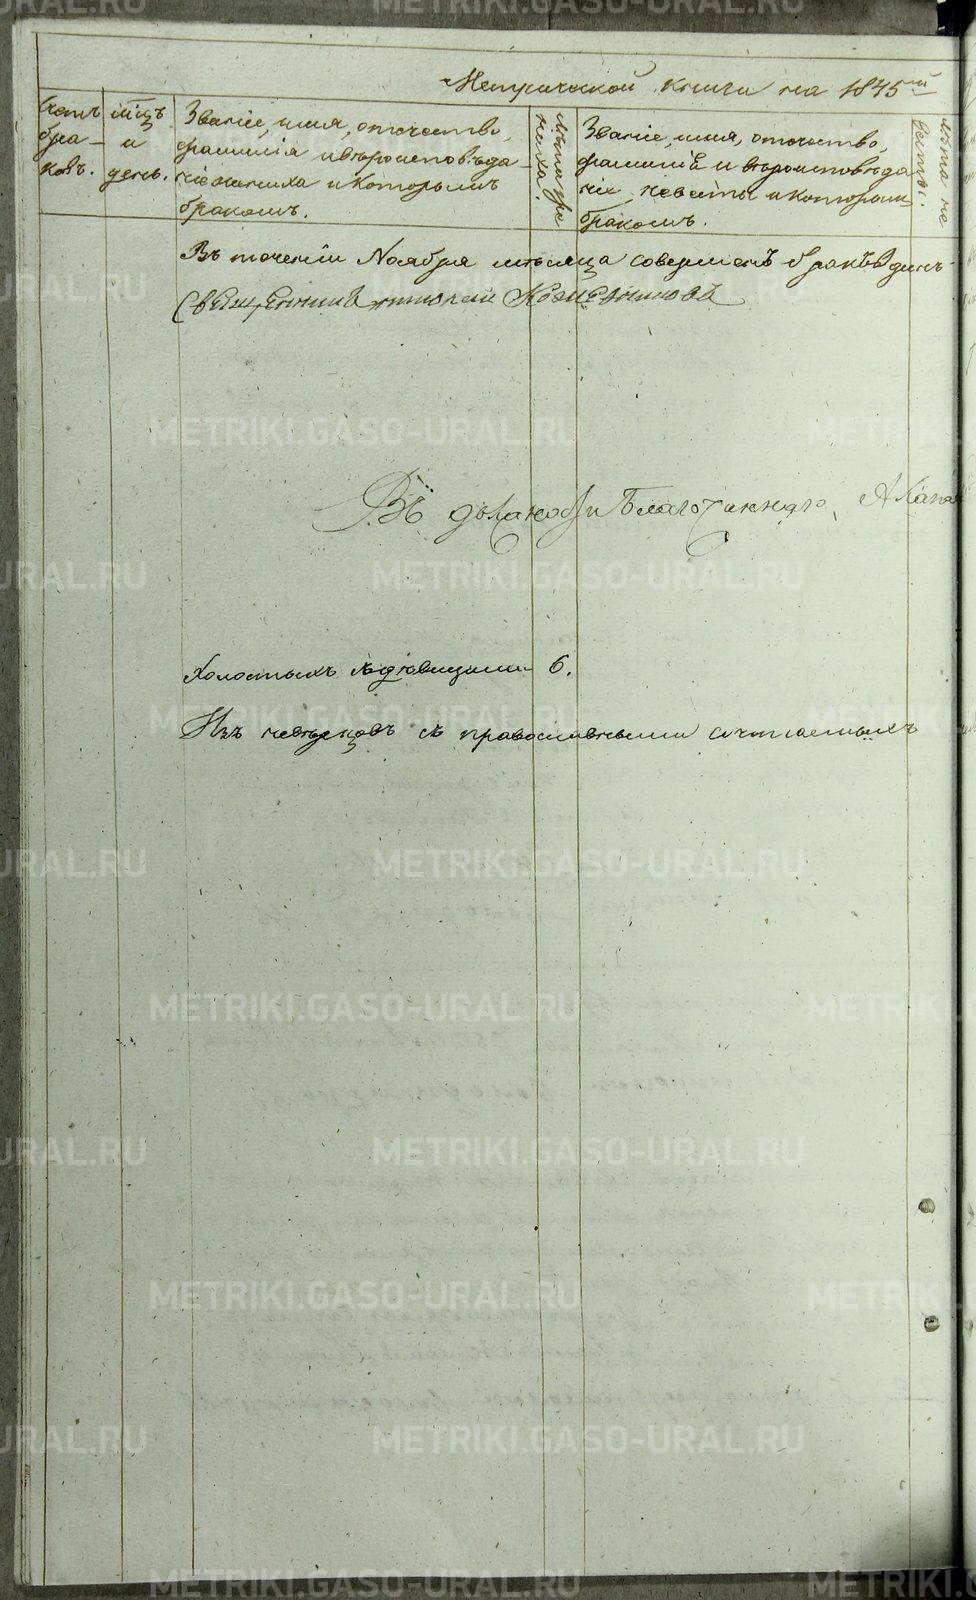 Метрической книги на 1845й
Счетъ
бра-
ковъ.
мцъ
и
день.
Званіе, имя, отчество,
фамилія и вѣроисповѣда
ніе жениха и которымъ
бракомъ.
Лѣта же
ниха.
Званіе, имя, отчество,
фамилія и вѣроисповѣда
ніе невѣсты и которым
бракомъ.
Лѣта не
весты.
Въ теченіи Ноября мѣсяца совершенъ бракъ динъ
Священникъ
Въ должности Благочиннаго,
Холостыхъ съ дѣвицами 6.
Изъ невѣрцовъ съ православными сочтаемыхъ
METRIKI.GASO-URAL.RU